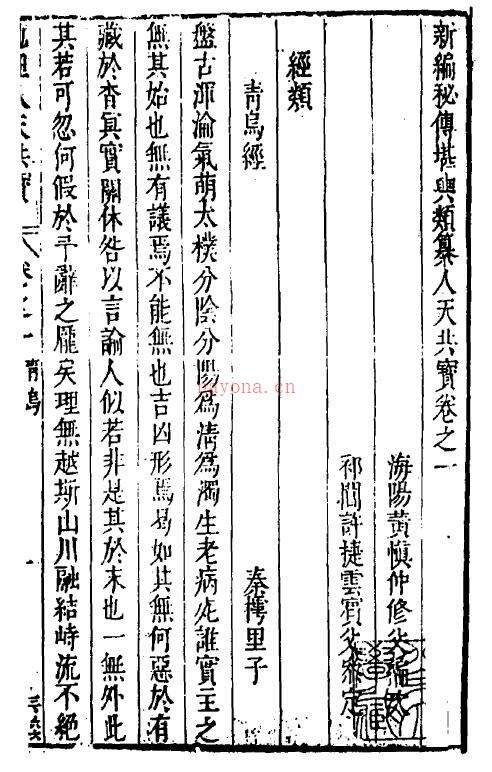 新編秘傳堪輿類纂人天共寶卷之一
海陽黃慎仲修父編
祁閶許捷雲賓父叅定
經類
青烏經
秦樗里子
盤古渾淪氣萌太樸分陰分陽為清為濁生老病死誰實主之
無其始也無有議焉不能無也吉凶形焉曷如其無何惡於有
藏於杳冥實關休咎以言諭人似若非是其於末也一無外此
其若可忽何假於予辭之厖矣理無越斯山川融結峙流不絕
卷之一
青烏
nayona.cn